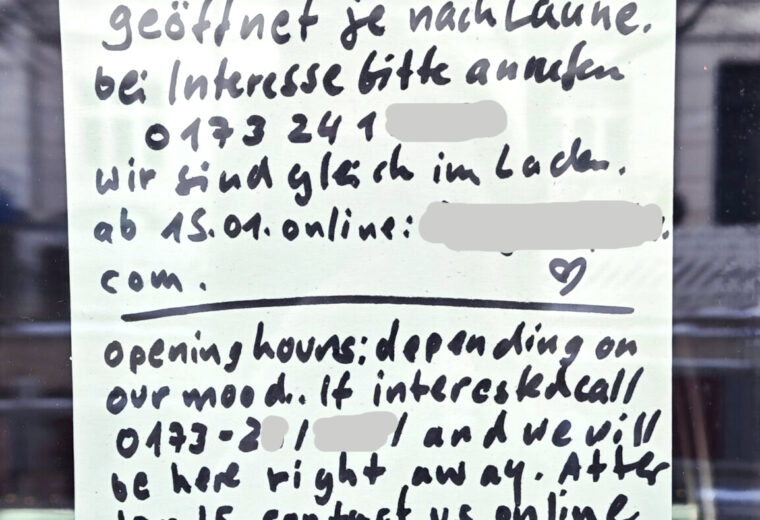 geöffnet je nach Laune.
bei Interesse bitte anrufen
0173 241
wir sind gleich im Laden.
ab 15.01. online:
com.
opening hours: depending on
our mood. If interested call
0173-2 / / and we will
be here right away. After
Jan 15 contact us online